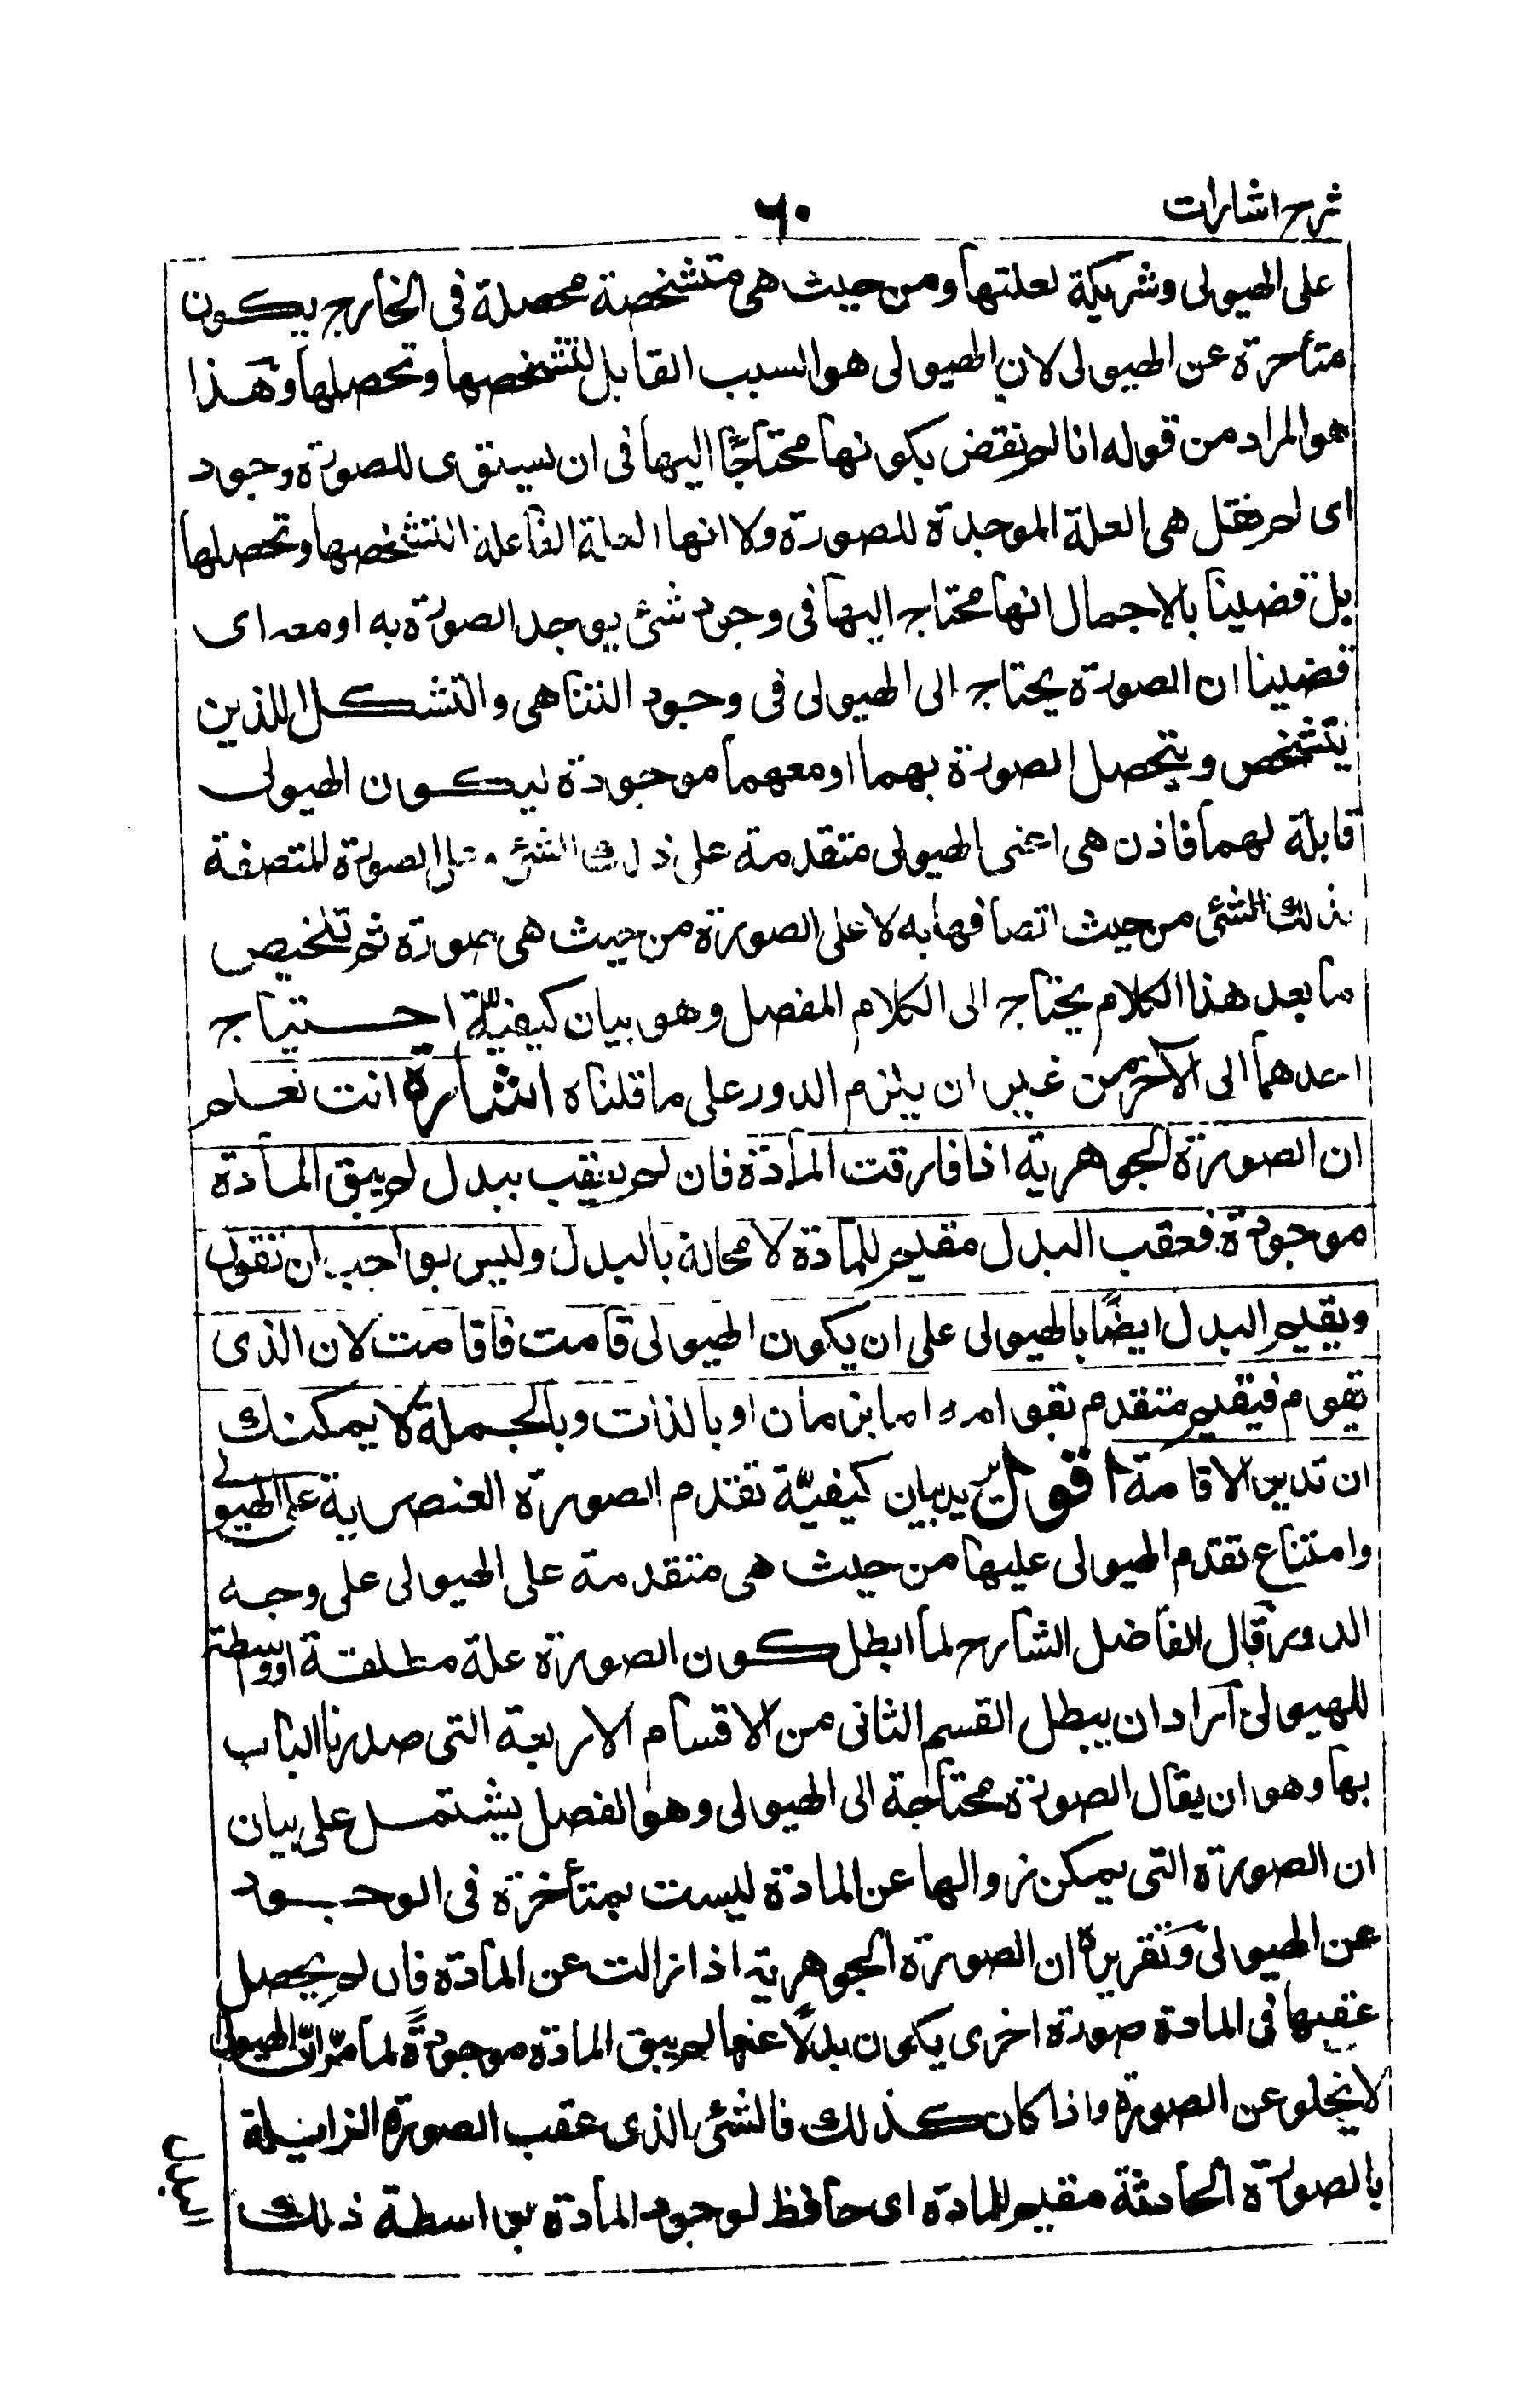 شرح اشارات
٦٠
على الهيولى وشريكة لعلتها ومن حيث هى متشخصة محصلة فى الخارج يكون
متأخرة عن الهيولى لان الهيولى هو السبب القابل لتشخصها وتحصلها وهذا
هو المراد من قوله انا لم نقض بكونها محتاجًا اليها فى ان يستوى للصورة وجود
اى لم نقل هى العلة الموجدة للصورة ولا انها العلة الفاعلة لتشخصها وتحصلها
بل قضينا بالاجمال انها محتاج اليها فى وجود شئ يوجد الصورة به او معه اى
قضينا ان الصورة يحتاج الى الهيولى فى وجود التناهى والتشكل اللذين
يتشخص ويتحصل الصورة بهما او معهما موجودة ليكون الهيولى
قابلة لهما فاذن هى اعنى الهيولى متقدمة على ذلك الشئ وعلى الصورة المتصفة
بذلك الشئ من حيث اتصافها به لا على الصورة من حيث هى صورة ثم تلخيص
ما بعد هذا الكلام يحتاج الى الكلام المفصل وهو بيان كيفيّة احتياج
احدهما الى الآخر من غير ان يلزم الدور على ما قلناه اشارة انت تعلم
ان الصورة الجوهرية اذا فارقت المادة فان لم يعقب ببدل لم يبق المادة
موجودة فمعقب البدل مقيم للمادة لا محالة بالبدل وليس بواجب ان تقول
ويقيم البدل ايضًا بالهيولى على ان يكون الهيولى قامت فاقامت لان الذى
يقوم فيقيم متقدم بقوامه اما بزمان او بالذات وبالجملة لا يمكنك
ان تدير الاقامة اقول يريد بيان كيفيّة تقدم الصورة العنصرية على الهيولى
وامتناع تقدم الهيولى عليها من حيث هى متقدمة على الهيولى على وجه
الدور قال الفاضل الشارح لما ابطل كون الصورة علة مطلقة او واسطة
للهيولى اراد ان يبطل القسم الثانى من الاقسام الاربعة التى صدرنا الباب
بها وهو ان يقال الصورة محتاجة الى الهيولى وهو الفصل يشتمل على بيان
ان الصورة التى يمكن زوالها عن المادة ليست بمتأخرة فى الوجود
عن الهيولى وتقريره ان الصورة الجوهرية اذا زالت عن المادة فان لم يحصل
عقيبها فى المادة صورة اخرى يكون بدلًا عنها لم يبق المادة موجودةً لما مرّ ان الهيولى
لا يخلو عن الصورة واذا كان كذلك فالشئ الذى عقب الصورة الزايلة
بالصورة الحادثة مقيم للمادة اى حافظ لوجود المادة بواسطة ذلك